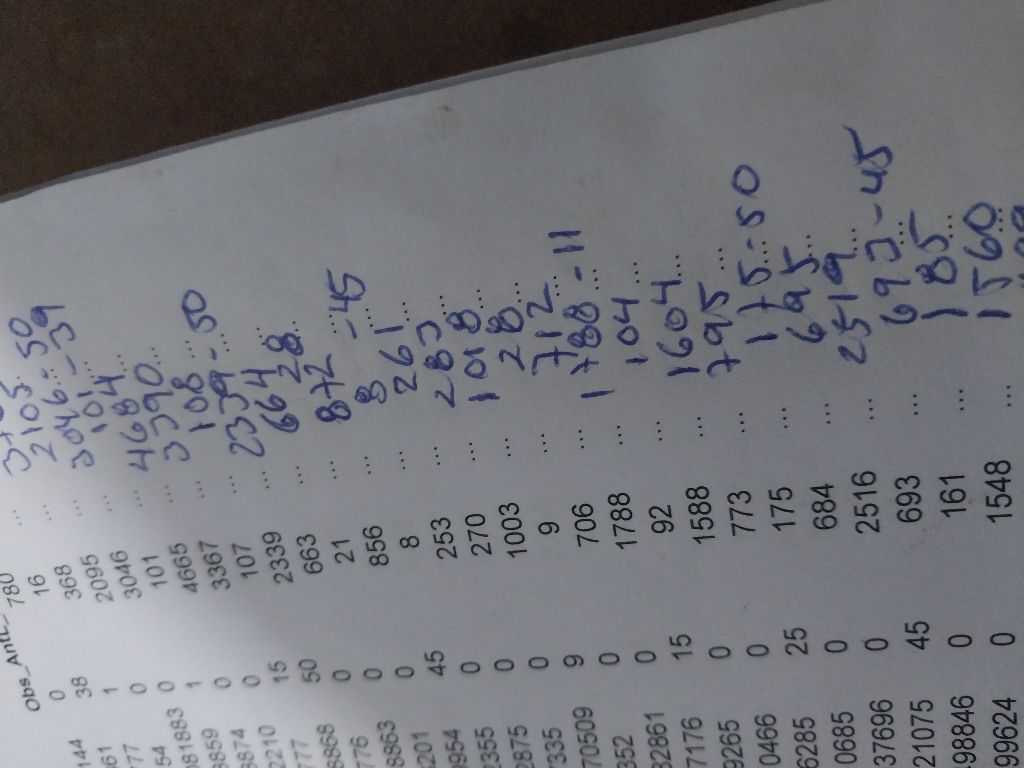 Obs_ Antl-
144 38 780
061 1 16
77 0 368
54 0 2095 ... 2105-50
081883 1 3046 ... 3046-39
3859 0 101 ... 101
8874 0 4665 ... 4684
2210 15 3367 ... 3390
777 50 107 ... 108
8868 0 2339 ... 2339-50
776 0 663 ... 664
8863 0 21 ... 28
8201 45 856 ... 872-45
9954 0 8 ... 8
2355 0 253 ... 261
2875 0 270 ... 283
7335 0 1003 ... 1018
70509 9 9 ... 28
352 0 706 ... 712
82861 0 1788 ... 1788-11
7176 15 92 ... 104
9265 0 1588 ... 1604
0466 0 773 ... 795
6285 25 175 ... 175-50
0685 0 684 ... 695
37696 0 2516 ... 2519
21075 45 693 ... 693-45
98846 0 161 ... 185
99624 0 1548 ... 1560